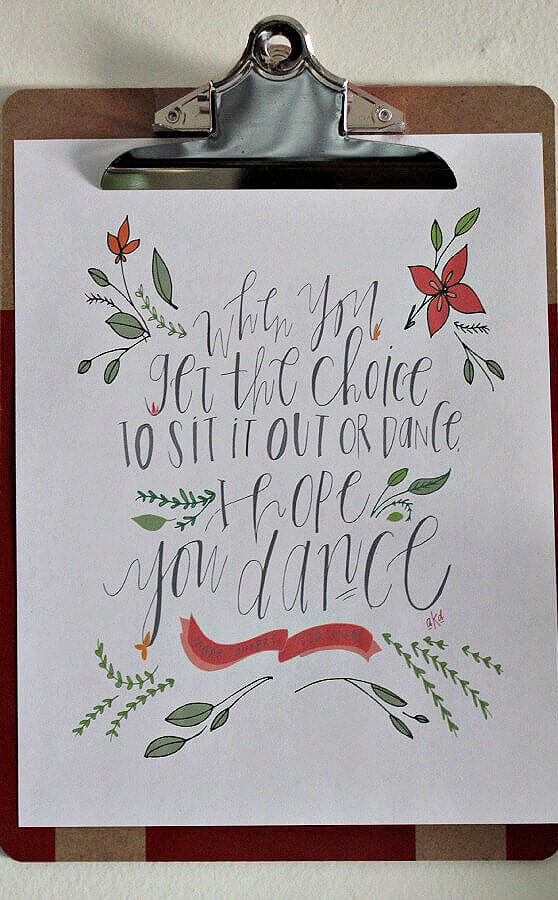 when you
get the choice
TO SIT IT OUT OR DANCE,
I hope
you dance
akd